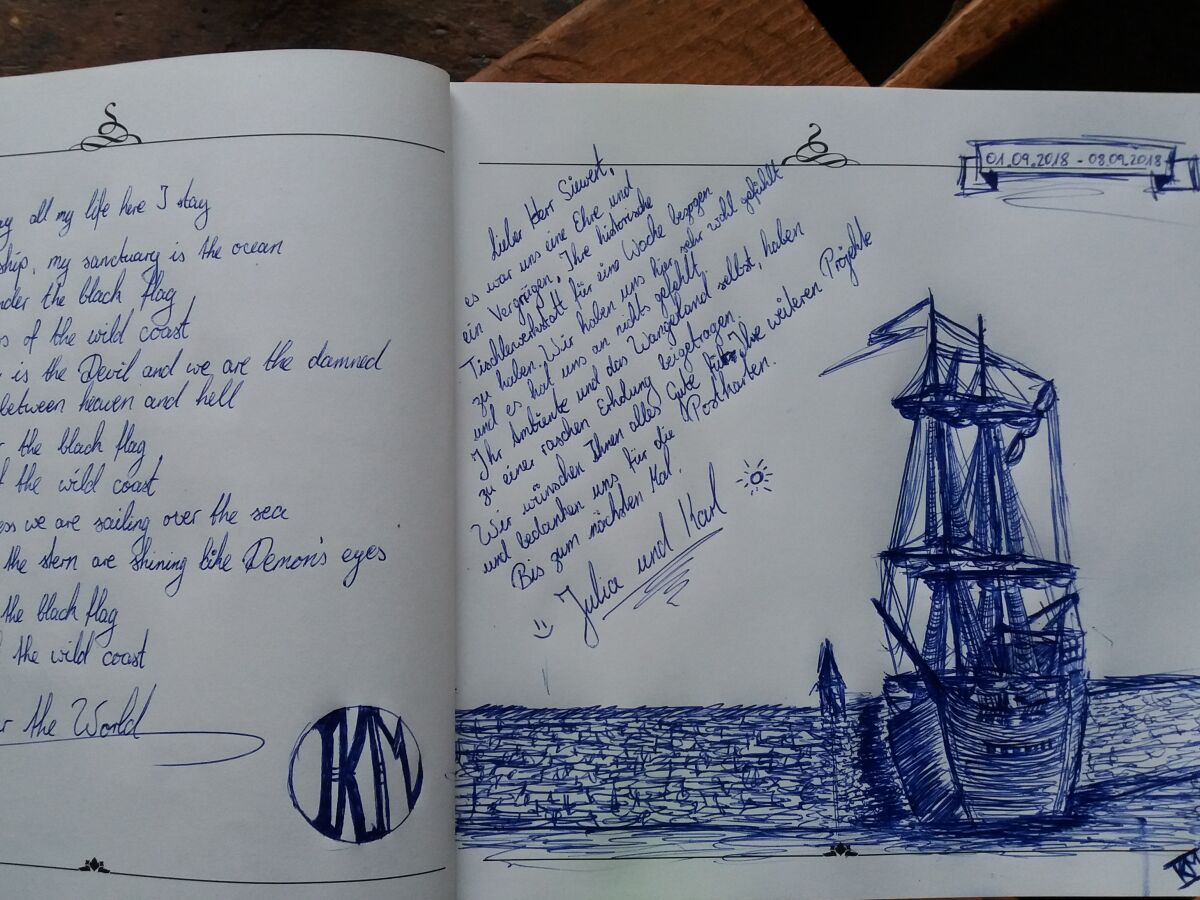 all my life here I stay
ship, my sanctuary is the ocean
under the black flag
of the wild coast
is the Devil and we are the damned
between heaven and hell
the black flag
the wild coast
we are sailing over the sea
the stern are shining like Demon's eyes
the black flag
the wild coast
the World
JKM
01.09.2018 - 08.09.2018
Lieber Herr Siewert,
es war uns eine Ehre und
ein Vergnügen, Ihre historische
Tischlerwerkstatt für eine Woche bezogen
zu haben. Wir haben uns hier sehr wohl gefühlt
und es hat uns an nichts gefehlt.
Ihr Ambiente und das Wangerland selbst, haben
zu einer raschen Erholung beigetragen.
Wir wünschen Ihnen alles Gute für Ihre weiteren Projekte
und bedanken uns für die Postkarten.
Bis zum nächsten Mal.
Julia und Karl
JKM